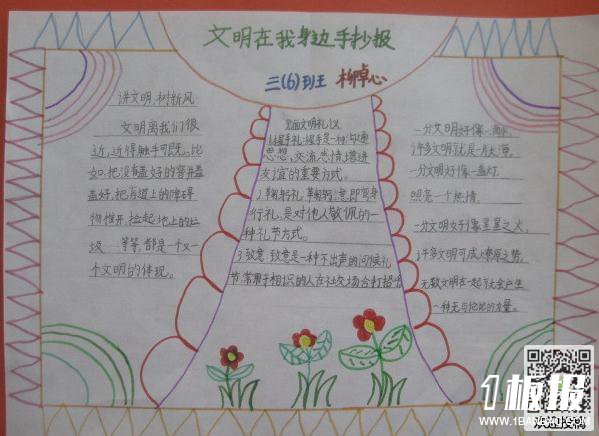 文明在我身边手抄报
三(6)班
讲文明,树新风
文明离我们很
近,近得触手可既,比
如,把没有盖好的窨井盖
盖好,把马道上的障碍
物推开,捡起地上的垃
圾……等等,都是一个又一
个文明的体现。
见面文明礼仪
1.握手礼:握手是一种沟通
思想,交流感情,增进
友谊的重要方式。
2.鞠躬礼,鞠躬意即弯身
行礼,是对他人敬佩的一
种礼节方式。
3.致意:致意是一种不出声的问候礼
节,常用于相识的人在社交场合打招呼
一分文明好像一滴水,
许多文明就是一片大海。
一分文明好像一盏灯,
照亮一个热情,
一分文明好像星星之火,
许多文明可成燎原之势。
无数文明在一起就会产生
一种无与伦比的力量。
1板报
WWW.1BANBAO.COM
欢迎投稿